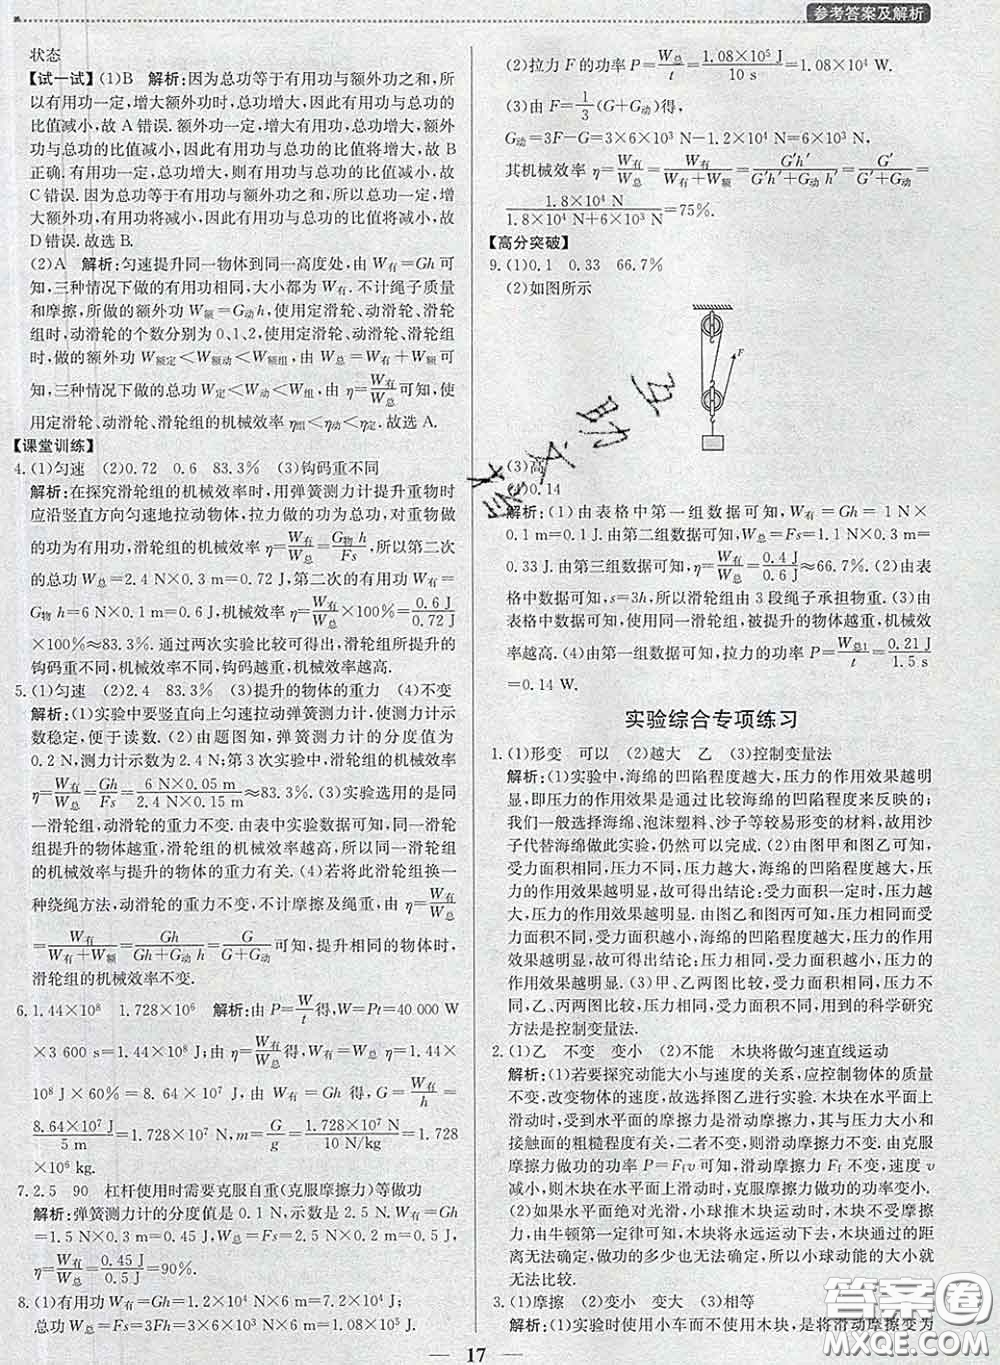 参考答案及解析
状态
【试一试】(1)B　解析:因为总功等于有用功与额外功之和,所
以有用功一定,增大额外功时,总功增大,因此有用功与总功的
比值减小,故 A 错误.额外功一定,增大有用功,总功增大,额外
功与总功的比值减小,因此有用功与总功的比值将增大,故 B
正确.有用功一定,总功增大,则有用功与总功的比值减小,故
C 错误.因为总功等于有用功与额外功之和,所以总功一定,增
大额外功,有用功将减小,因此有用功与总功的比值将减小,故
D 错误.故选 B.
(2)A　解析:匀速提升同一物体到同一高度处,由 W有=Gh可
知,三种情况下做的有用功相同,大小都为 W有.不计绳子质量
和摩擦,所做的额外功 W额=G动h,使用定滑轮、动滑轮、滑轮
组时,动滑轮的个数分别为 0、1、2,使用定滑轮、动滑轮、滑轮组
时,做的额外功 W额定<W额动<W额组,由 W总=W有+W额可
知,三种情况下做的总功 W总定<W总动<W总组,由 η=W有/W总可知,使
用定滑轮、动滑轮、滑轮组的机械效率 η组<η动<η定.故选 A.
【课堂训练】
4.(1)匀速　(2)0.72　0.6　83.3%　(3)钩码重不同
解析:在探究滑轮组的机械效率时,用弹簧测力计提升重物时
应沿竖直方向匀速地拉动物体,拉力做的功为总功,对重物做
的功为有用功,滑轮组的机械效率 η=W有/W总=G物h/Fs,所以第二次
的总功 W总=2.4 N×0.3 m=0.72 J,第二次的有用功 W有=
G物 h=6 N×0.1 m=0.6 J,机械效率 η=W有/W总×100%=0.6 J/0.72 J
×100%≈83.3%.通过两次实验比较可得出,滑轮组所提升的
钩码重不同,机械效率不同,钩码越重,机械效率越高.
5.(1)匀速　(2)2.4　83.3%　(3)提升的物体的重力　(4)不变
解析:(1)实验中要竖直向上匀速拉动弹簧测力计,使测力计示
数稳定,便于读数.(2)由题图知,弹簧测力计的分度值为
0.2 N,测力计示数为 2.4 N;第 3 次实验中滑轮组的机械效率
η=W有/W总=Gh/Fs=6 N×0.05 m/2.4 N×0.15 m≈83.3%.(3)实验选用的是同
一滑轮组,动滑轮的重力不变.由表中实验数据可知,同一滑轮
组提升的物体重力越大,滑轮组的机械效率越高,所以同一滑轮
组的机械效率与提升的物体的重力有关.(4)若将此滑轮组换一
种绕绳方法,动滑轮的重力不变,不计摩擦及绳重,由 η=W有/W总
=W有/W有+W额=Gh/Gh+G动h=G/G+G动可知,提升相同的物体时,
滑轮组的机械效率不变.
6.1.44×10⁸　1.728×10⁶　解析:由 P=W/t得,W=Pt=40 000 W
×3 600 s=1.44×10⁸ J;由 η=W有/W总得,W有=W总η=1.44×
10⁸ J×60%=8.64×10⁷ J,由 W有=Gh 得,G=W有/h=
8.64×10⁷ J/5 m=1.728×10⁷ N,m=G/g=1.728×10⁷ N/10 N/kg=1.728
×10⁶ kg.
7.2.5　90　杠杆使用时需要克服自重(克服摩擦力)等做功
解析:弹簧测力计的分度值是 0.1 N,示数是 2.5 N.W有=Gh
=1.5 N×0.3 m=0.45 J,W总=Fs=2.5 N×0.2 m=0.5 J,
η=W有/W总=0.45 J/0.5 J=90%.
8.(1)有用功 W有=Gh=1.2×10⁴ N×6 m=7.2×10⁴ J;
总功 W总=Fs=3Fh=3×6×10³ N×6 m=1.08×10⁵ J.
(2)拉力 F 的功率 P=W总/t=1.08×10⁵ J/10 s=1.08×10⁴ W.
(3)由 F=1/3(G+G动)得,
G动=3F-G=3×6×10³ N-1.2×10⁴ N=6×10³ N,
其机械效率 η=W有/W总=W有/W有+W额=G′h′/G′h′+G动h′=G′/G′+G动=
1.8×10⁴ N/1.8×10⁴ N+6×10³ N=75%.
【高分突破】
9.(1)0.1　0.33　66.7%
(2)如图所示
F
(3)高
(4)0.14
解析:(1)由表格中第一组数据可知,W有=Gh=1 N×
0.1 m=0.1 J.由第二组数据可知,W总=Fs=1.1 N×0.3 m=
0.33 J.由第三组数据可知,η=W有/W总=0.4 J/0.6 J≈66.7%.(2)由表
格中数据可知,s=3h,所以滑轮组由 3 段绳子承担物重.(3)由
表格中数据可知,使用同一滑轮组,被提升的物体越重,机械效
率越高.(4)由第一组实验可知,拉力的功率 P=W总1/t=0.21 J/1.5 s
=0.14 W.
实验综合专项练习
1.(1)形变　可以　(2)越大　乙　(3)控制变量法
解析:(1)实验中,海绵的凹陷程度越大,压力的作用效果越明
显,即压力的作用效果是通过比较海绵的凹陷程度来反映的;
我们一般选择海绵、泡沫塑料、沙子等较易形变的材料,故用沙
子代替海绵做此实验,仍然可以完成.(2)由图甲和图乙可知,
受力面积相同,压力不同,压力越大,海绵的凹陷程度越大,压力
的作用效果越明显,故可得出结论:受力面积一定时,压力越
大,压力的作用效果越明显.由图乙和图丙可知,压力相同而受
力面积不同,受力面积越小,海绵的凹陷程度越大,压力的作用
效果越明显,故可得出结论:压力一定时,受力面积越小,压力的
作用效果越明显.(3)甲、乙两图比较,受力面积相同,压力不
同,乙、丙两图比较,压力相同,受力面积不同,用到的科学研究
方法是控制变量法.
2.(1)乙　不变　变小　(2)不能　木块将做匀速直线运动
解析:(1)若要探究动能大小与速度的关系,应控制物体的质量
不变,改变物体的速度,故选择图乙进行实验.木块在水平面上
滑动时,受到水平面的摩擦力是滑动摩擦力,其与压力大小和
接触面的粗糙程度有关,二者不变,则滑动摩擦力不变.由克服
摩擦力做功的功率 P=Ffv 可知,滑动摩擦力不变,速度 v
减小,则木块在水平面上滑动时,克服摩擦力做功的功率变小.
(2)如果水平面绝对光滑,小球推木块运动时,木块将不受阻
力,由牛顿第一定律可知,木块将永远运动下去,木块通过的距
离无法确定,做功的多少也无法确定,所以小球动能的大小就
无法比较.
3.(1)摩擦　(2)变小　变大　(3)相等
解析:(1)实验时使用小车而不使用木块,是将滑动摩擦变为
17
答案圈
MXQE.COM